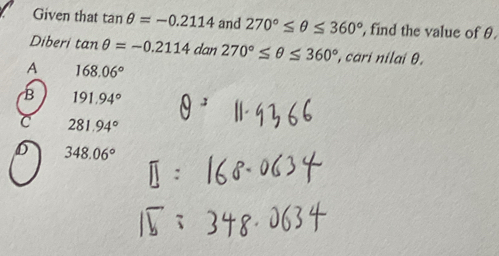 Given that tan θ = −0.2114 and 270° ≤ θ ≤ 360°, find the value of θ.
Diberi tan θ = −0.2114 dan 270° ≤ θ ≤ 360°, cari nilai θ.
A 168.06°
B 191.94°
C 281.94°
D 348.06°
θ = 11.9366
II : 168.0634
IV : 348.0634